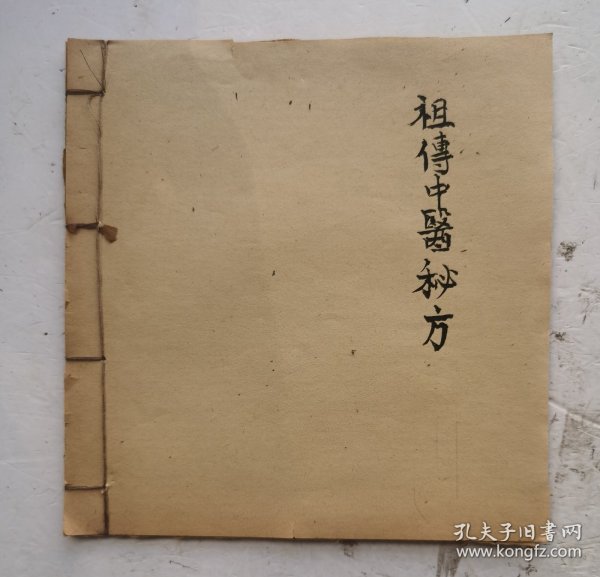 祖傳中醫秘方
孔夫子旧书网
www.kongfz.com